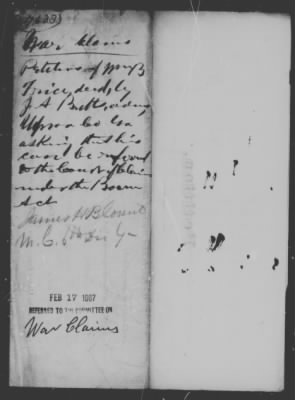 War Claims
Petition of Wm B
Trice, decd, by
J. A. Butts, admr,
Upson Co Ga
asking that his
case be referred
to the Court of Claims
under the Bowman
Act
James H Blount
M. C. 6th Dis Ga
FEB 17 1887
REFERRED TO THE COMMITTEE ON
War Claims
Petition.